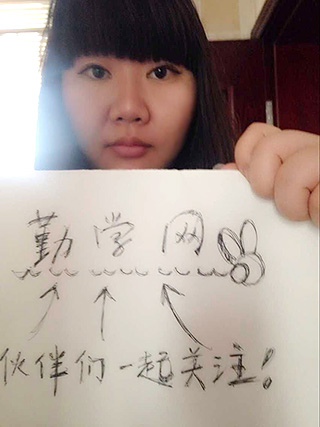 勤学网
伙伴们一起关注！